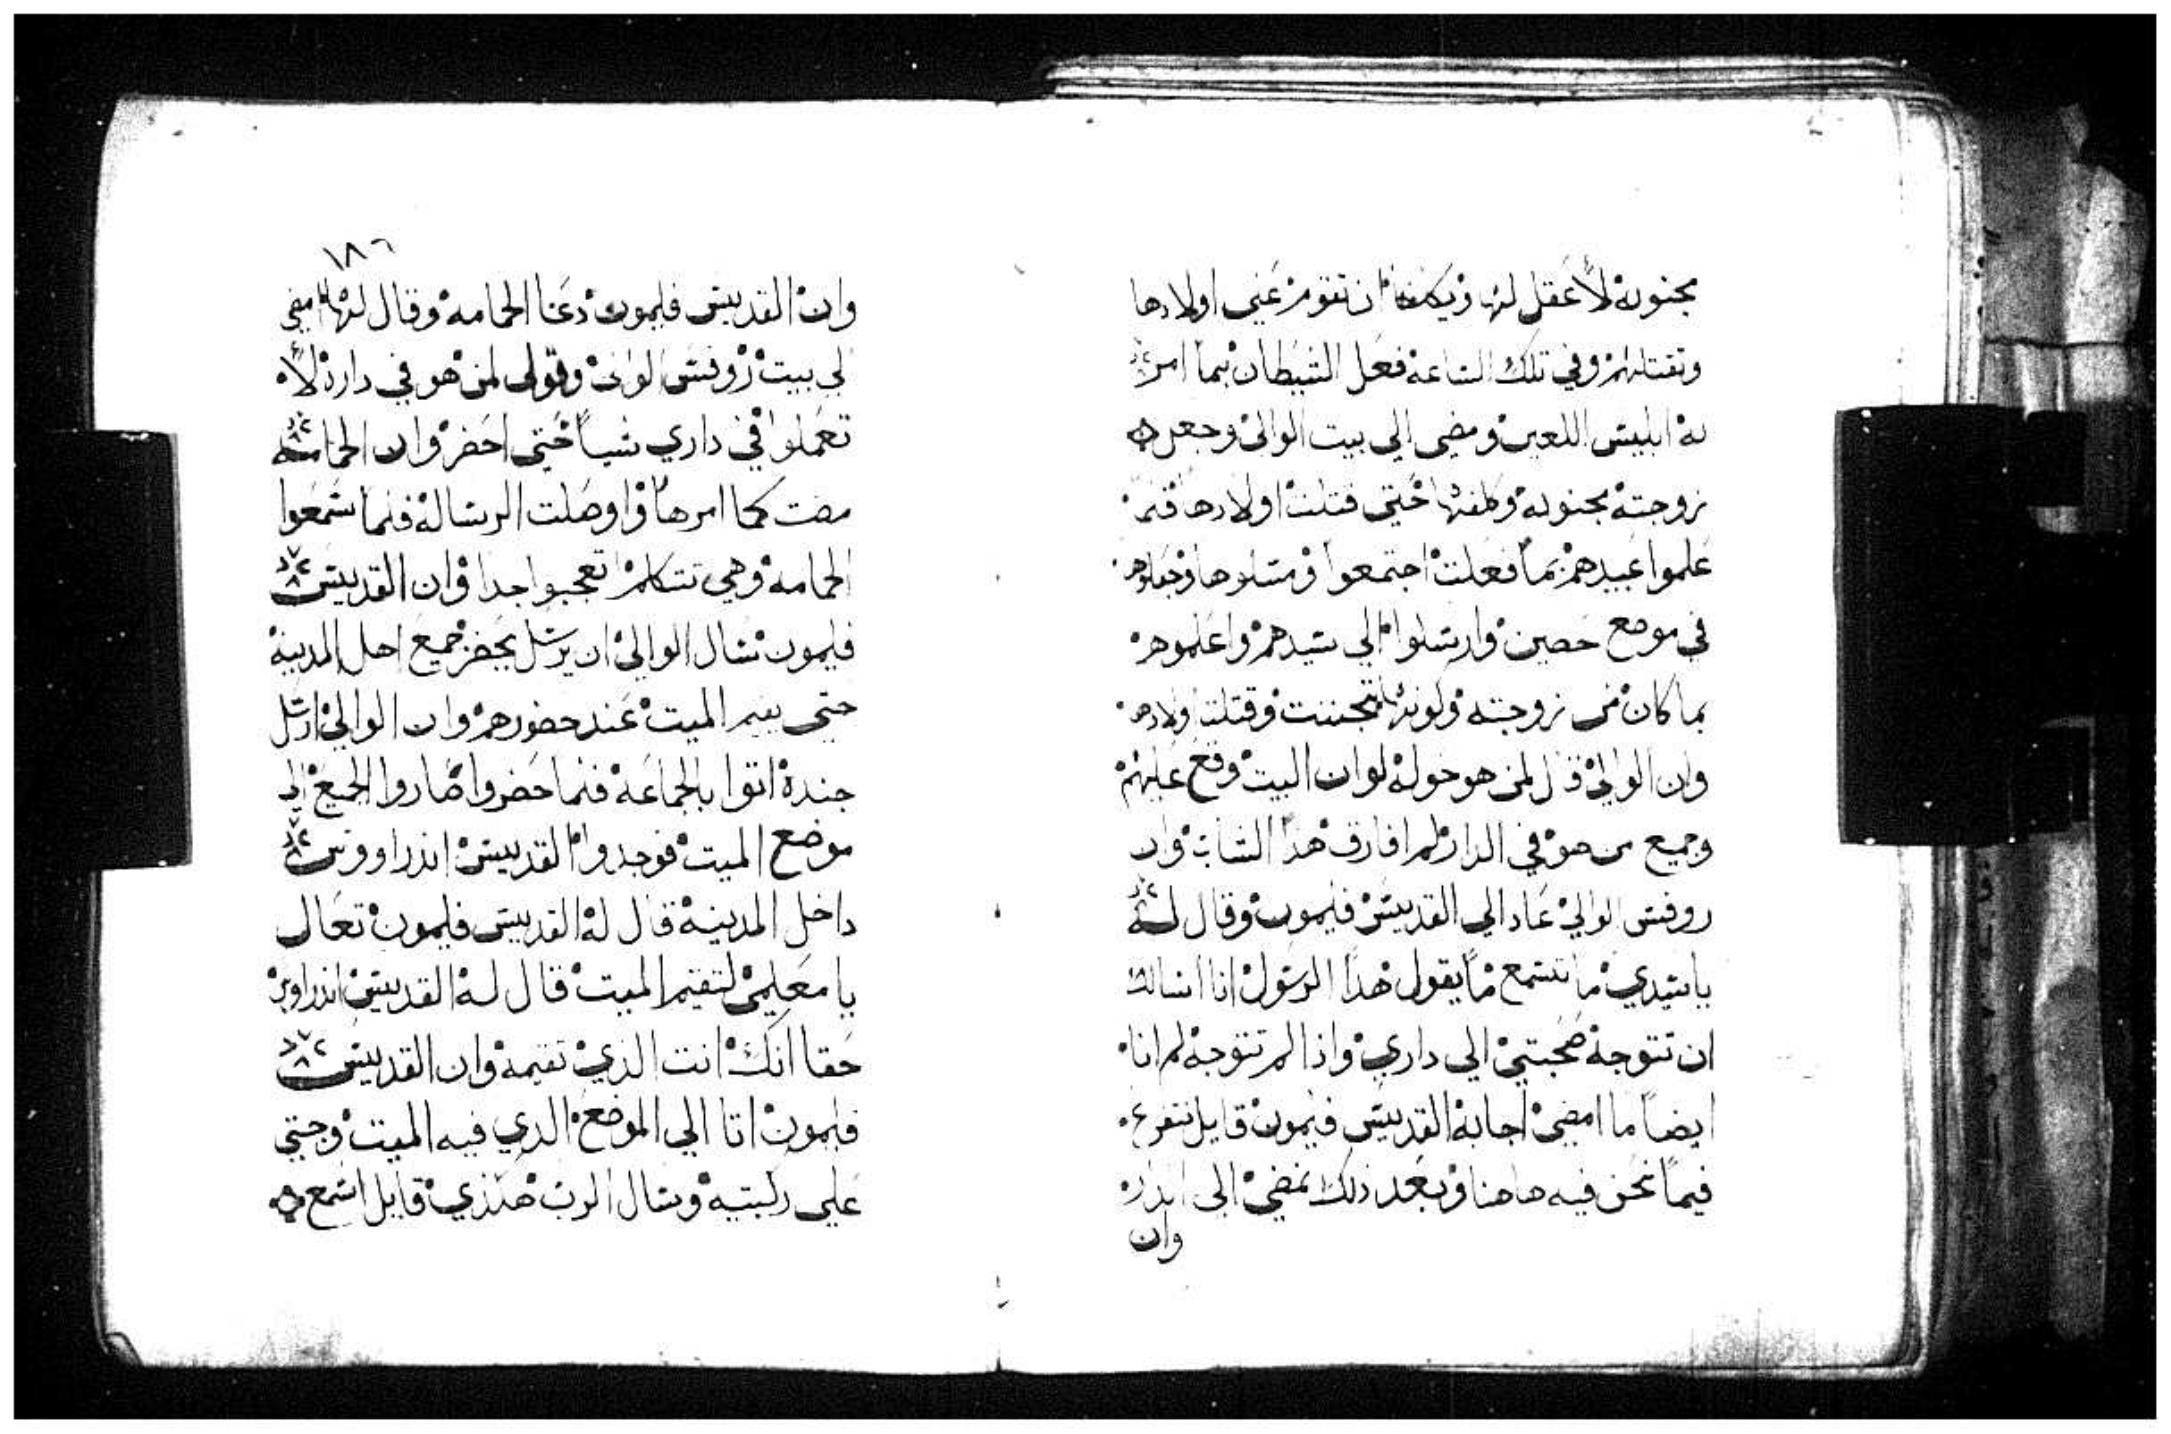 مجنونه لا عقل لها ويكلفها ان تقوم على اولادها
وتقتلهم وفي تلك الساعه فعل الشيطان بما امر
به ابليس اللعين ومضى الى بيت الوالي وجعل
زوجته مجنونه وكلفها حتى قتلت اولادها فلما
علموا عبيدهم بما فعلت اجتمعوا ومسكوها وجعلوها
في موضع حصين وارسلوا الى سيدهم واعلموه
بما كان من زوجته وكونها تجننت وقتلت اولادها
وان الوالي قال لمن هو حوله لو ان البيت وقع عليهم
وجميع من هو في الدار لم افارق هذا الشاب وان
روفس الوالي عاد الى القديس فليمون وقال له
يا سيدي ما تسمع ما يقول هذا الرسول انا اسالك
ان تتوجه صحبتي الى داري واذا لم تتوجه لم انا
ايضا ما امضي اجابه القديس فليمون قايل نتفرغ
فيما نحن فيه هاهنا وبعد ذلك نمضي الى
وان
١٨٦
وان القديس فليمون دعا الحمامه وقال لها امضي
لي بيت روفس الوالي وقولي لمن هو في داره لا
تعملوا في داري شيا حتى احضر وان الحمامه
مضت كما امرها واوصلت الرساله فلما سمعوا
الحمامه وهي تتكلم تعجبوا جدا وان القديس
فليمون سال الوالي ان يرسل يحضر جميع اهل المدينه
حتى يقيم الميت عند حضورهم وان الوالي ارسل
جنده اتوا بالجماعه فلما حضروا صاروا الجميع الى
موضع الميت فوجدوا القديس اندراووس
داخل المدينه قال له القديس فليمون تعال
يا معلمي لتقيم الميت قال له القديس اندراوس
حقا انك انت الذي تقيمه وان القديس
فليمون اتا الى الموضع الدي فيه الميت وجتي
على ركبتيه وسال الرب هكذي قايل اسمع